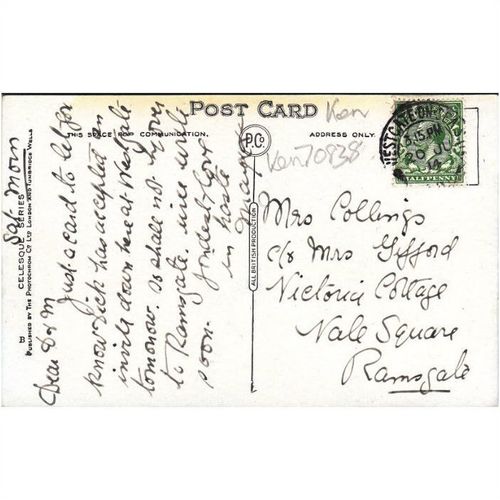 POST CARD
THIS SPACE FOR COMMUNICATION.
ADDRESS ONLY.
P.C.
Ken
Ken 70838
WESTGATE-ON-SEA
3.15 PM
20 JU
14
HALFPENNY
B
CELESQUE SERIES
PUBLISHED BY THE PHOTOCHROM CO LTD LONDON AND TUNBRIDGE WELLS
ALL BRITISH PRODUCTION
Sat. Morn
Dear D & M
Just a card to let you
know Dick has accepted an
invite down here at Westgate
tomorrow so shall not be over
to Ramsgate. will write
soon. fondest love
in haste
Mrs Collings
c/o Mrs Gifford
Victoria Cottage
Vale Square
Ramsgate